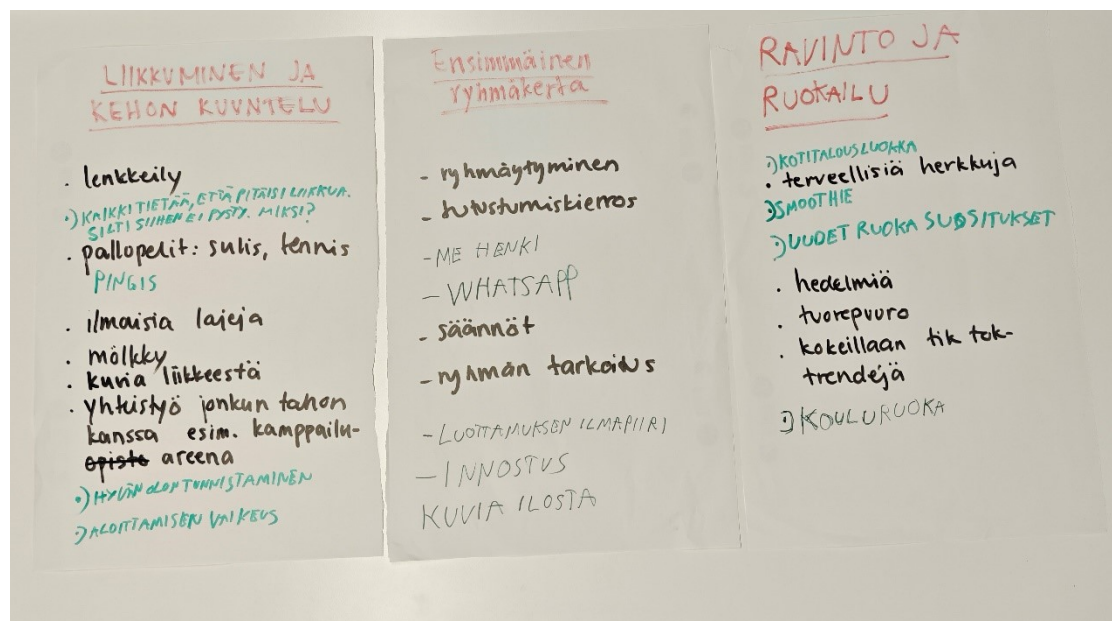 LIIKKUMINEN JA
KEHON KUUNTELU
· lenkkeily
·) KAIKKI TIETÄÄ, ETTÄ PITÄISI LIIKKUA.
SILTI SIIHEN EI PYSTY. MIKSI?
· pallopelit: sulis, tennis
PINGIS
· ilmaisia lajeja
· mölkky
· kuvia liikkeestä
· yhteistyö jonkun tahon
kanssa esim. kamppailu-
opisto areena
·) HYVÄN OLON TUNNISTAMINEN
·) ALOITTAMISEN VAIKEUS
Ensimmäinen
ryhmäkerta
- ryhmäytyminen
- tutustumiskierros
- ME HENKI
- WHATSAPP
- säännöt
- ryhmän tarkoitus
- LUOTTAMUKSEN ILMAPIIRI
- INNOSTUS
KUVIA ILOSTA
RAVINTO JA
RUOKAILU
·) KOTITALOUSLUOKKA
· terveellisiä herkkuja
·) SMOOTHIE
·) UUDET RUOKA SUOSITUKSET
· hedelmiä
· tuorepuuro
· kokeillaan tik tok-
trendejä
·) KOULURUOKA